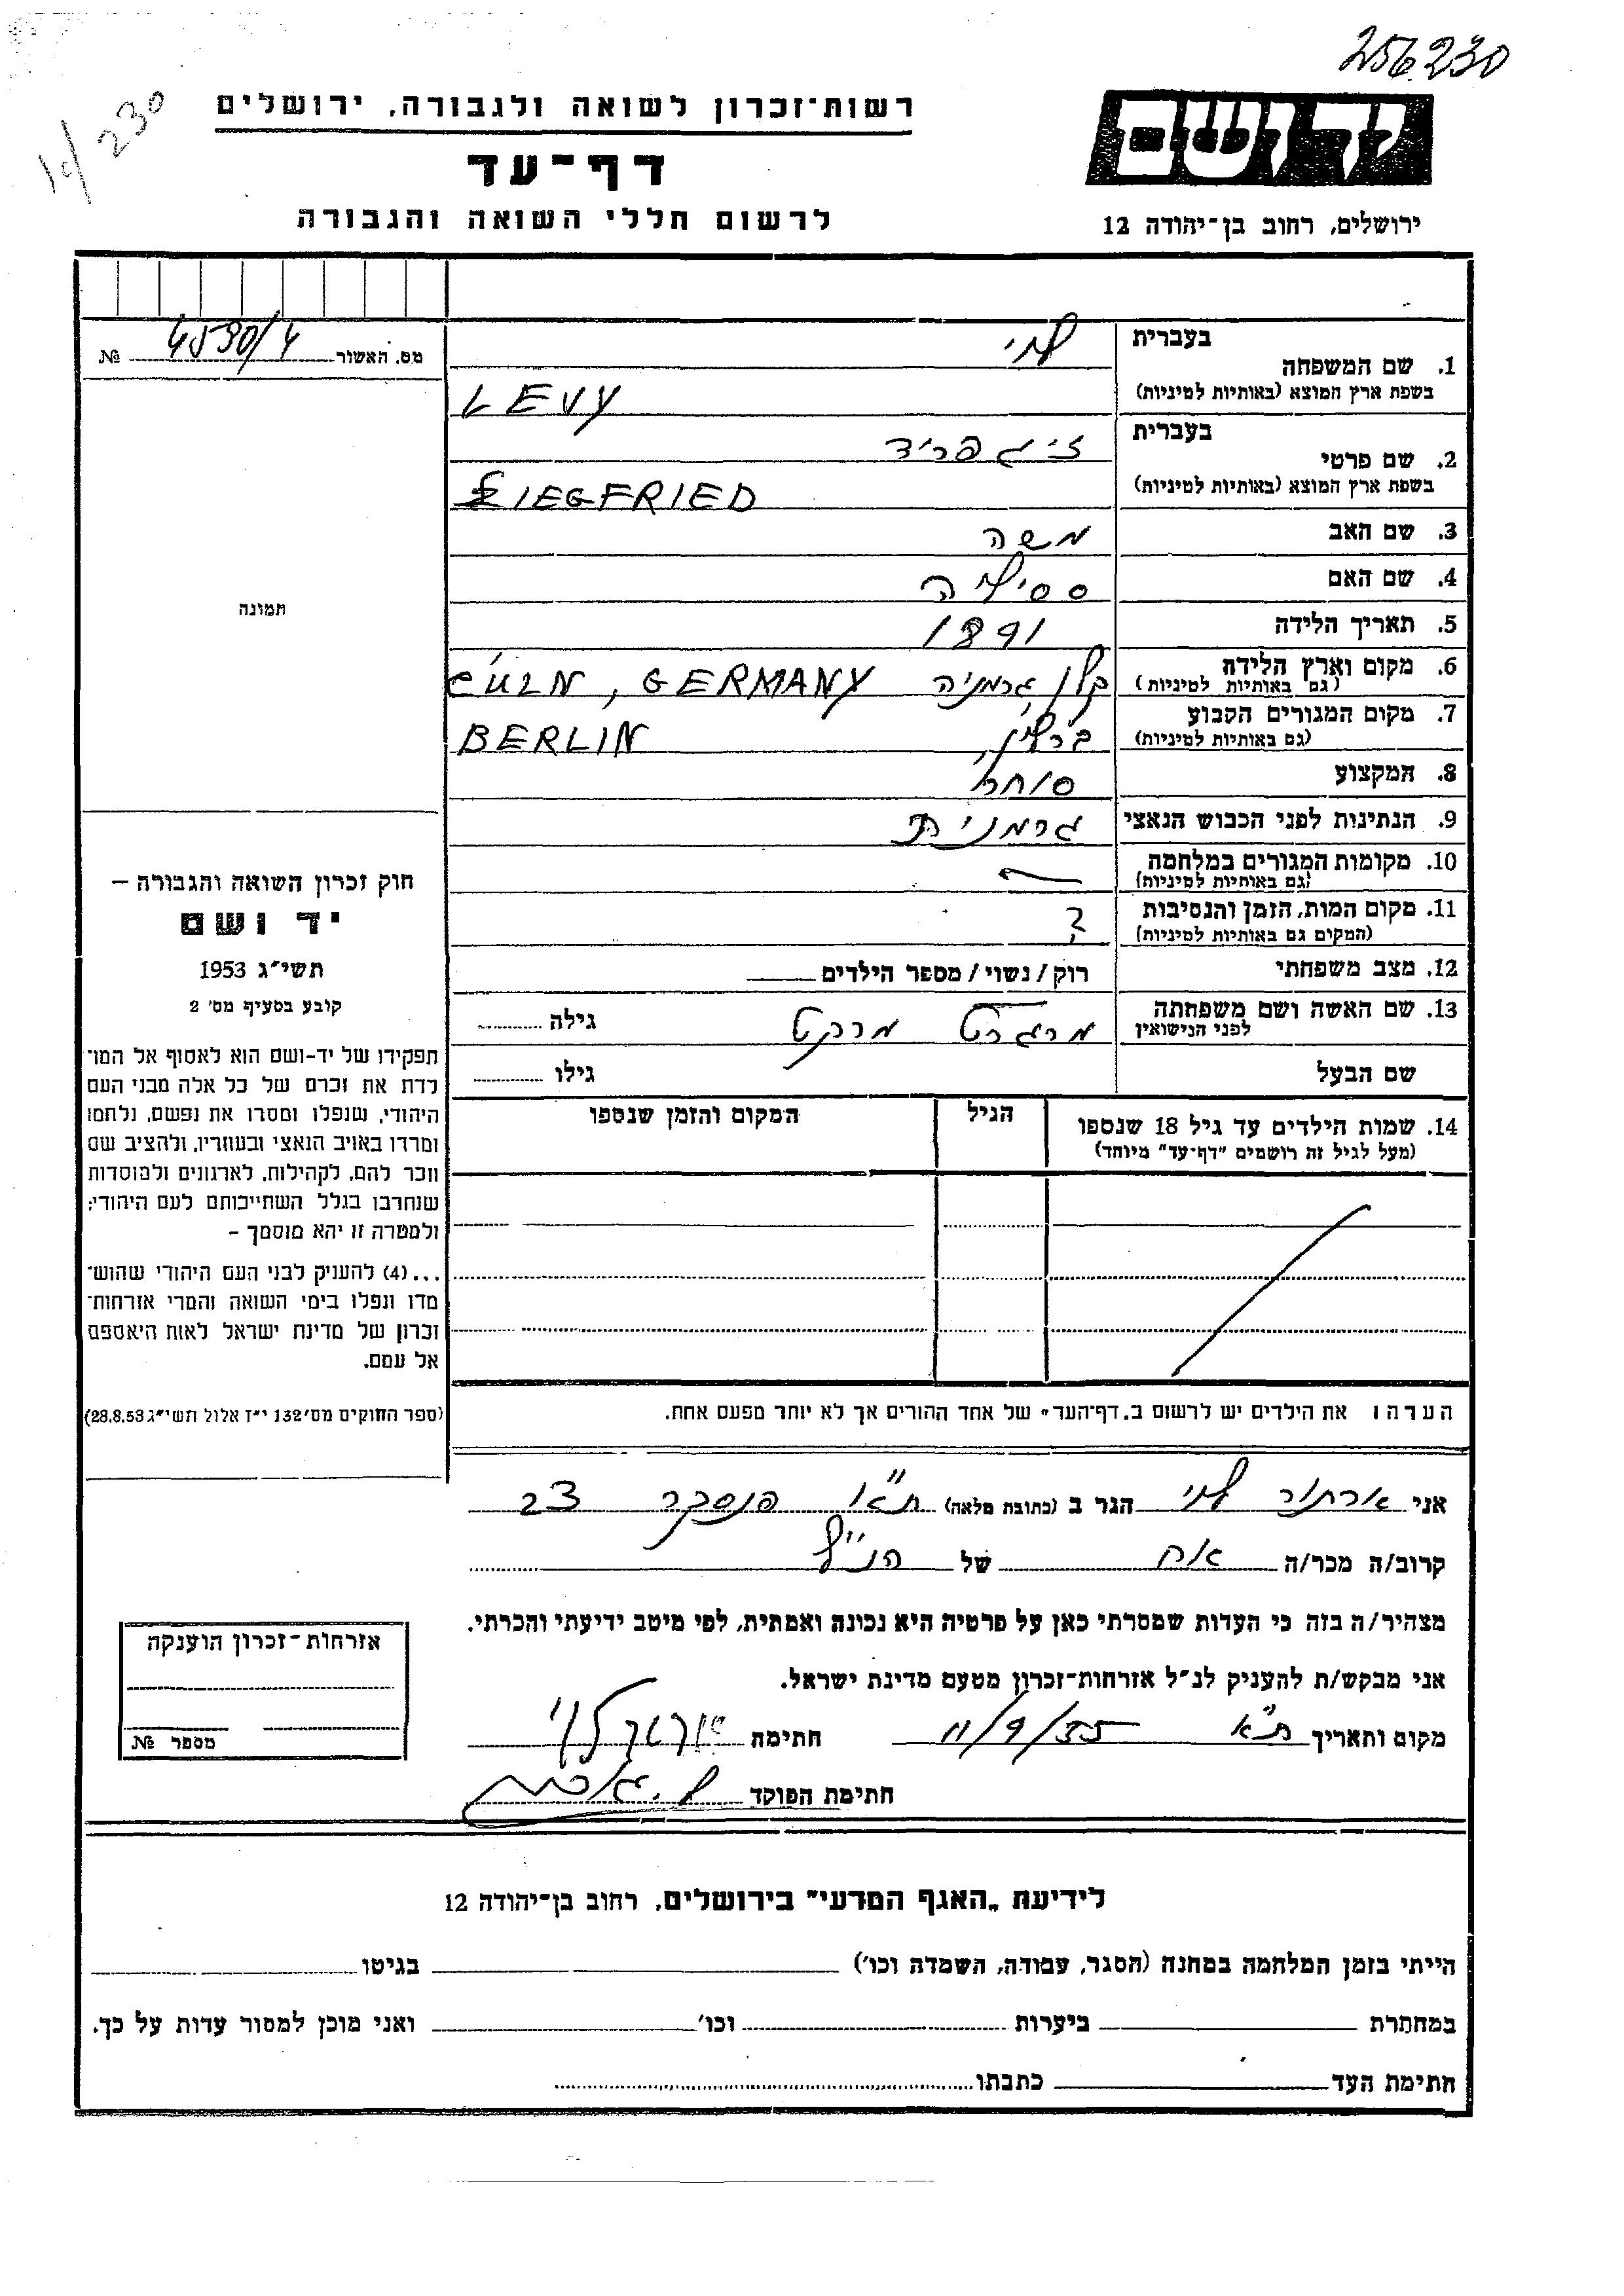 256230
10/230
רשות־זכרון לשואה ולגבורה, ירושלים
דף־עד
לרשום חללי השואה והגבורה
ידושם
ירושלים, רחוב בן־יהודה 12
מס. האשור 4590/4 №
תמונה
חוק זכרון השואה והגבורה –
יד ושם
תשי״ג 1953
קובע בסעיף מס׳ 2
תפקידו של יד-ושם הוא לאסוף אל המו־
לדת את זכרם של כל אלה מבני העם
היהודי, שנפלו ומסרו את נפשם, נלחמו
ומרדו באויב הנאצי ובעוזריו, ולהציב שם
וזכר להם, לקהילות, לארגונים ולמוסדות
שנחרבו בגלל השתייכותם לעם היהודי;
ולמטרה זו יהא מוסמך –
...(4) להעניק לבני העם היהודי שהוש־
מדו ונפלו בימי השואה והמרי אזרחות־
זכרון של מדינת ישראל לאות היאספם
אל עמם.
(ספר החוקים מס׳ 132 י״ז אלול תשי״ג 28.8.53)
בעברית לוי
1. שם המשפחה
בשפת ארץ המוצא (באותיות לטיניות) LEVY
בעברית זיגפריד
2. שם פרטי
בשפת ארץ המוצא (באותיות לטיניות) SIEGFRIED
3. שם האב משה
4. שם האם ססיליה
5. תאריך הלידה 1891
6. מקום וארץ הלידה קלן גרמניה , GERMANY
(גם באותיות לטיניות)
7. מקום המגורים הקבוע ברלין, BERLIN
(גם באותיות לטיניות)
8. המקצוע סוחר
9. הנתינות לפני הכבוש הנאצי גרמנית
10. מקומות המגורים במלחמה
(גם באותיות לטיניות)
11. מקום המות, הזמן והנסיבות ?
(המקום גם באותיות לטיניות)
12. מצב משפחתי רוק / נשוי / מספר הילדים
13. שם האשה ושם משפחתה מרגרט מרקט גילה
לפני הנישואין
שם הבעל גילו
14. שמות הילדים עד גיל 18 שנספו הגיל המקום והזמן שנספו
(מעל לגיל זה רושמים "דף־עד" מיוחד)
הערה: את הילדים יש לרשום ב„דף־העד״ של אחד ההורים אך לא יותר מפעם אחת.
אני ארתור לוי הגר ב (כתובת מלאה) ת״א פנסקר 23
קרוב/ה מכר/ה אח של הנ״ל
מצהיר/ה בזה כי העדות שמסרתי כאן על פרטיה היא נכונה ואמתית, לפי מיטב ידיעתי והכרתי.
אני מבקש/ת להעניק לנ״ל אזרחות־זכרון מטעם מדינת ישראל.
מקום ותאריך ת״א 11/9/55 חתימה
חתימת הפוקד
אזרחות־זכרון הוענקה
מספר №
לידיעת „האגף המדעי״ בירושלים, רחוב בן־יהודה 12
הייתי בזמן המלחמה במחנה (הסגר, עבודה, השמדה וכו׳) בגיטו
במחתרת ביערות וכו׳ ואני מוכן למסור עדות על כך.
חתימת העד כתבתו